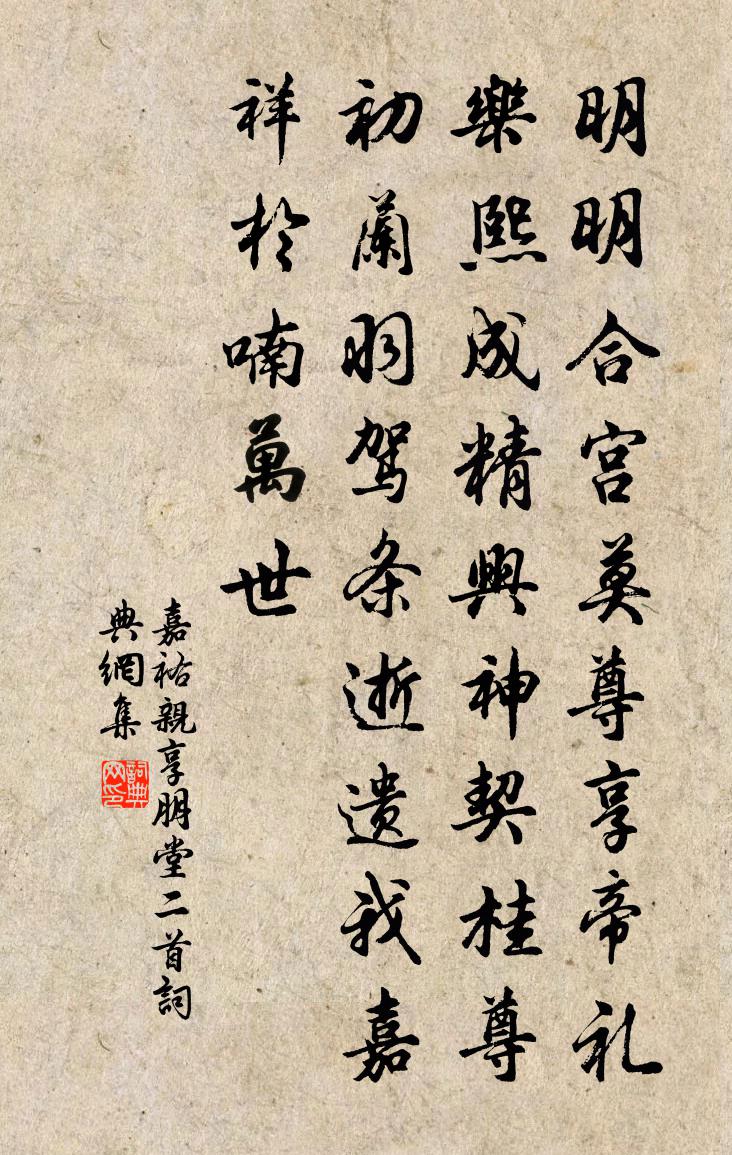 明明合宫莫尊享帝礼
樂熙成精與神契桂尊
初蘭羽驾条逝遗我嘉
祥於喃萬世
嘉祐親享明堂二首詞
典網集
詞典
网印